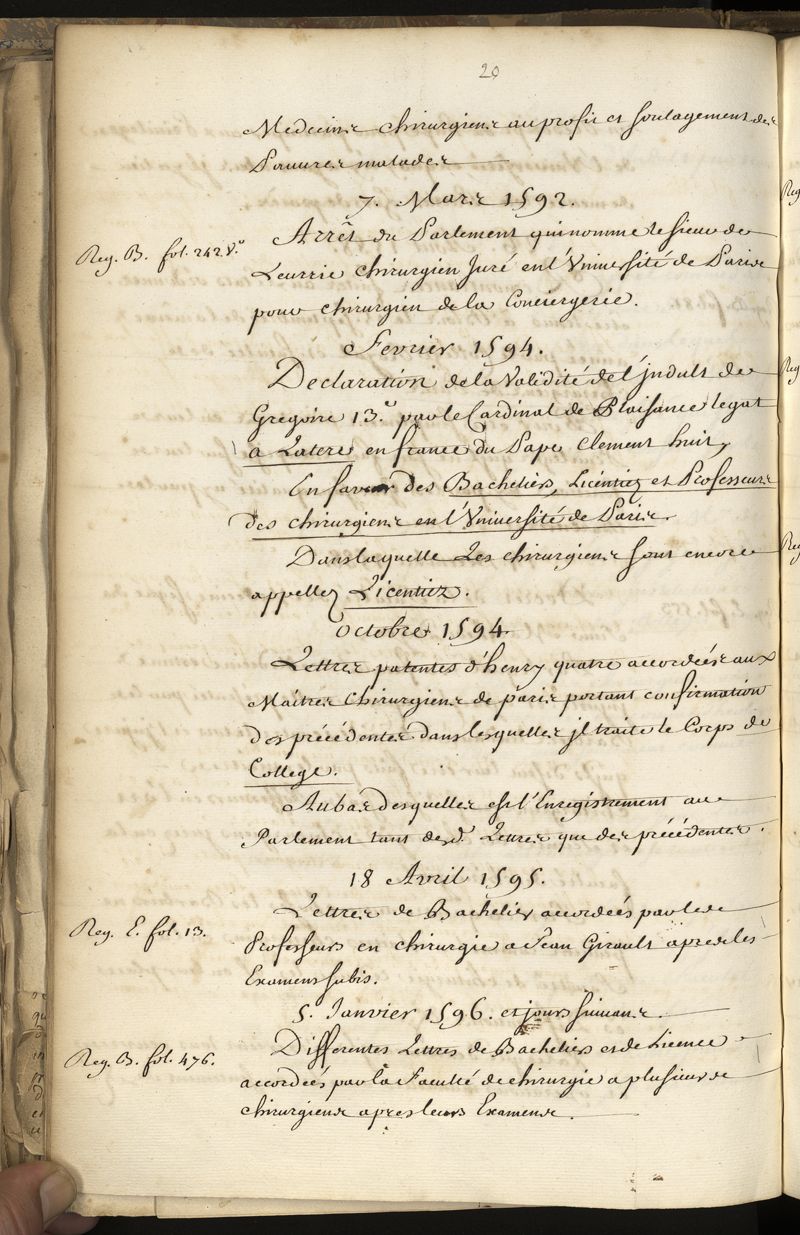 20
Medecins chirurgiens au profit et soulagement des
Pauvres malades
7. Mars 1592.
Reg. B. fol. 242 V.º
Arrêt du Parlement qui nomme le sieur de
Leurrie chirurgien Juré en l'Université de Paris
pour chirurgien de la Conciergerie.
Fevrier 1594.
Declaration de la Validité de l'jndult de
Gregoire 13.e par le Cardinal de Plaisance legat
a Latere en france du Pape Clement huit,
En faveur des Bacheliers, Licentiez et Professeurs
des chirurgiens en l'Université de Paris.
Dans laquelle Les chirurgiens sont encore
appellez Licentiez.
Octobre 1594.
Lettres patentes d'henry quatre accordées aux
Maîtres Chirurgiens de paris portant confirmation
des précédentes dans lesquelles jl traite le Corps de
College.
Au bas desquelles est l'Enregistrement au
Parlement tant desd. Lettres que des précédentes.
18 Avril 1595.
Reg. E. fol. 13.
Lettres de Bachelier accordées par les
Professeurs en chirurgie a Jean Girault apres les
Examens subis.
5. Janvier 1596. et jours suivans.
Reg. B. fol. 476.
Differentes Lettres de Bacheliers et de Licence
accordées par la Faculté de chirurgie a plusieurs
chirurgiens apres leurs Examens.
Reg
Reg
Reg